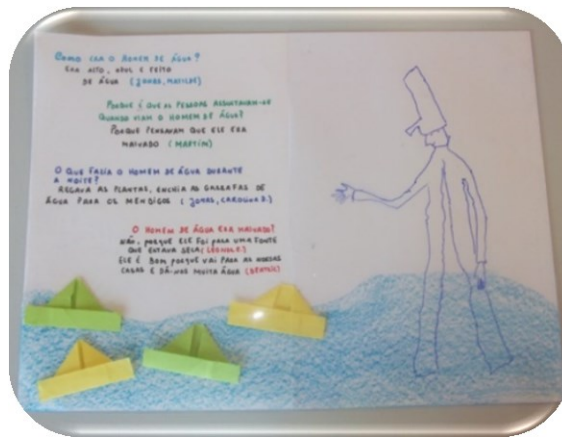 COMO ERA O HOMEM DE ÁGUA?
ERA ALTO, AZUL E FEITO
DE ÁGUA (JONAS, MATILDE)
PORQUE É QUE AS PESSOAS ASSUSTAVAM-SE
QUANDO VIAM O HOMEM DE ÁGUA?
PORQUE PENSAVAM QUE ELE ERA
MALVADO (MARTIM)
O QUE FAZIA O HOMEM DE ÁGUA DURANTE
A NOITE?
REGAVA AS PLANTAS, ENCHIA AS GARRAFAS DE
ÁGUA PARA OS MENDIGOS (JONAS, CAROLINA D.)
O HOMEM DE ÁGUA ERA MALVADO?
NÃO, PORQUE ELE FOI PARA UMA FONTE
QUE ESTAVA SECA (LEONOR E.)
ELE É BOM PORQUE VAI PARA AS NOSSAS
CASAS E DÁ-NOS MUITA ÁGUA (BEATRIZ)